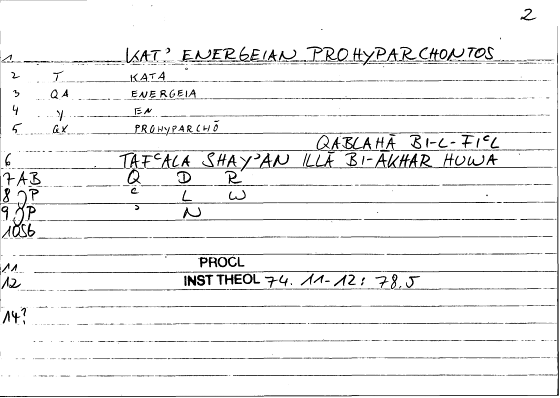 2
1 KAT' ENERGEIAN PROHYPARCHONTOS
2 T KATA
3 QA ENERGEIA
4 Y EN
5 QX PROHYPARCHŌ
QABLAHĀ BI-L-FIᶜL
6 TAFᶜALA SHAY'AN ILLĀ BI-ĀKHAR HUWA
7 AB Q D R
8 P ᶜ L W
9 P ' N
10 56
11 PROCL
12 INST THEOL 74. 11-12: 78.5
14?